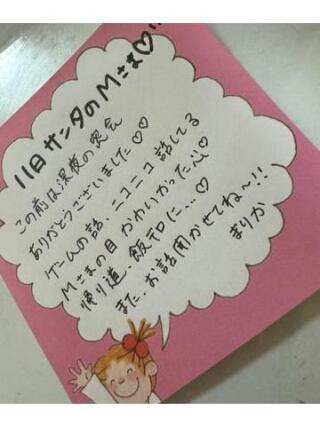 11日サンタのMさま♡
この前は深夜の密会
ありがとうございました♡♡
ゲームの話、ニコニコ話してる
Mさまの目かわいかった
帰り道、飯テロに...♡
また、お話聞かせてね〜!!
まりか